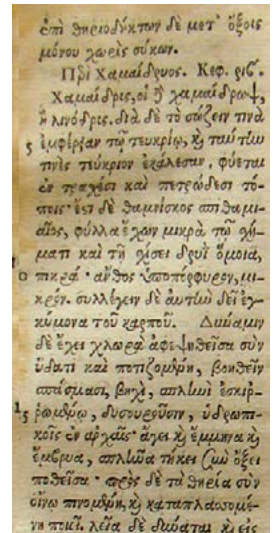 ἐπὶ θηριοδήκτων δὲ μετ' ὄξους
μόνου χωρὶς σύκων.
Περὶ Χαμαίδρυος. Κεφ. ριβ´.
Χαμαίδρις, οἱ ἢ χαμαίδρωψ,
ἢ λινόδρις. διὰ δὲ τὸ σώζειν τινὰ
5 ἐμφέρειαν τῷ τευκρίῳ, καὶ ταύτην
τινὲς τεύκριον ἐκάλεσαν, φύεται
ἐν τραχέσι καὶ πετρώδεσι τό-
ποις· ἔστι δὲ θαμνίσκος σπιθαμι-
αῖος, φύλλα ἔχων μικρὰ τῷ χή-
ματι καὶ τῇ χίσει δρυῒ ὅμοια,
10 πικρά· ἄνθος ὑποπόρφυρον, μι-
κρόν. συλλέγειν δὲ αὐτὴν δεῖ ἐγ-
κύμονα τοῦ καρποῦ. Δύναμιν
δὲ ἔχει χλωρὰ ἀφεψηθεῖσα σὺν
ὕδατι καὶ ποτιζομένη, βοηθεῖν
σπάσμασι, βηχὶ, σπληνὶ ἐσκιρ-
15 ρωμένῳ, δυσουροῦσιν, ὑδρωπι-
κοῖς ἐν ἀρχαῖς· ἄγει καὶ ἔμμηνα καὶ
ἔμβρυα, σπλῆνα τήκει σὺν ὄξει
ποθεῖσα· πρὸς δὲ τὰ θηρία σὺν
οἴνῳ πινομένη, καὶ καταπλασσομέ-
νη ποιεῖ. λεῖα δὲ δύναται καὶ εἰς